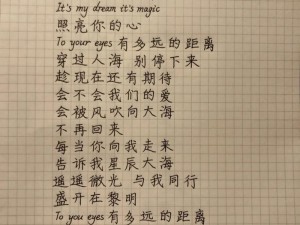 It's my dream it's magic
照亮你的心
To your eyes 有多远的距离
穿过人海 别停下来
趁现在还有期待
会不会我们的爱
会被风吹向大海
不再回来
每当你向我走来
告诉我星辰大海
遥遥微光 与我同行
盛开在黎明
To you eyes 有多远的距离